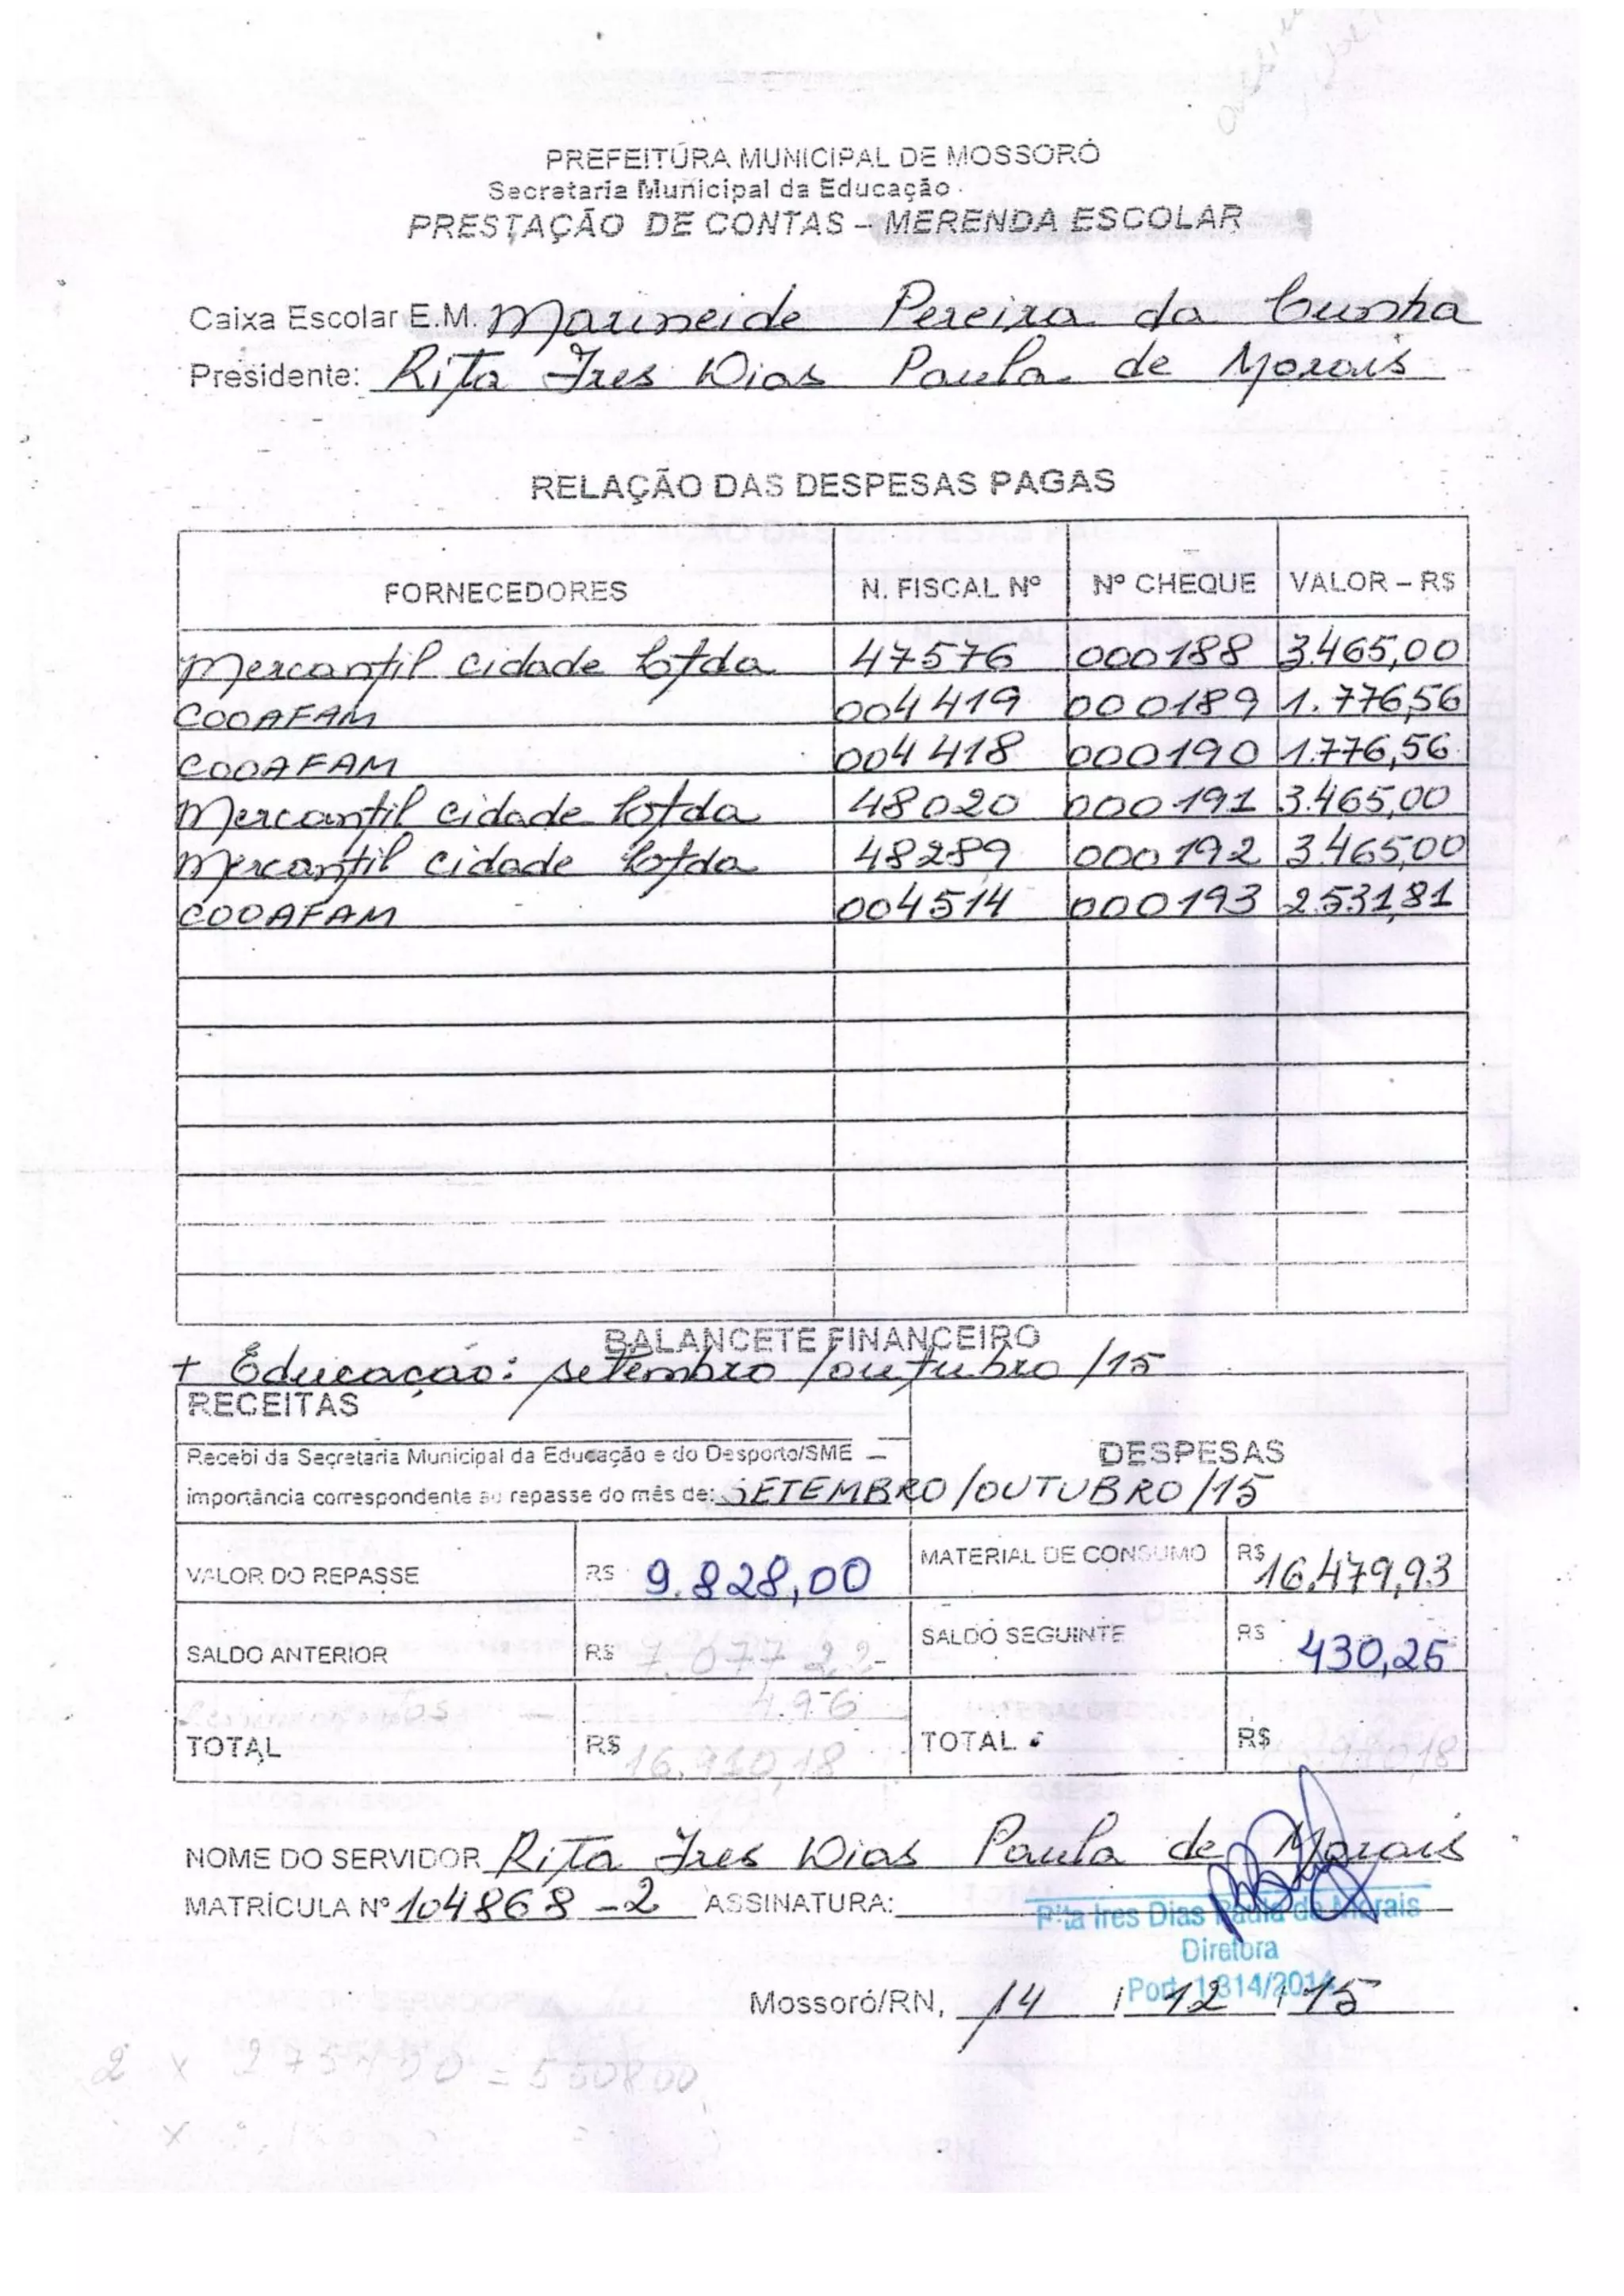 PREFEITURA MUNICIPAL DE MOSSORÓ
Secretaria Municipal da Educação
PRESTAÇÃO DE CONTAS – MERENDA ESCOLAR
Caixa Escolar E.M. Marineide Pereira da Cunha
Presidente: Rita Ires Dias Paula de Morais
RELAÇÃO DAS DESPESAS PAGAS
FORNECEDORES N. FISCAL Nº Nº CHEQUE VALOR – R$
Mercantil cidade Ltda 47576 000188 3.465,00
COOAFAM 004419 000189 1.776,56
COOAFAM 004418 000190 1.776,56
Mercantil cidade Ltda 48020 000191 3.465,00
Mercantil cidade Ltda 48289 000192 3.465,00
COOAFAM 004514 000193 2.531,81
BALANCETE FINANCEIRO
+ Educação: setembro/outubro/15
RECEITAS
Recebi da Secretaria Municipal da Educação e do Desporto/SME DESPESAS
importância correspondente ao repasse do mês de: SETEMBRO/OUTUBRO/15
VALOR DO REPASSE R$ 9.828,00 MATERIAL DE CONSUMO R$ 16.479,93
SALDO ANTERIOR R$ 7.077 22 SALDO SEGUINTE R$ 430,25
4.96
TOTAL R$ 16.910,18 TOTAL R$
NOME DO SERVIDOR Rita Ires Dias Paula de Morais
MATRÍCULA Nº 104868-2 ASSINATURA:
Rita Ires Dias Paula de Morais
Diretora
Port. 1314/2014
Mossoró/RN, 14 / 12 / 15